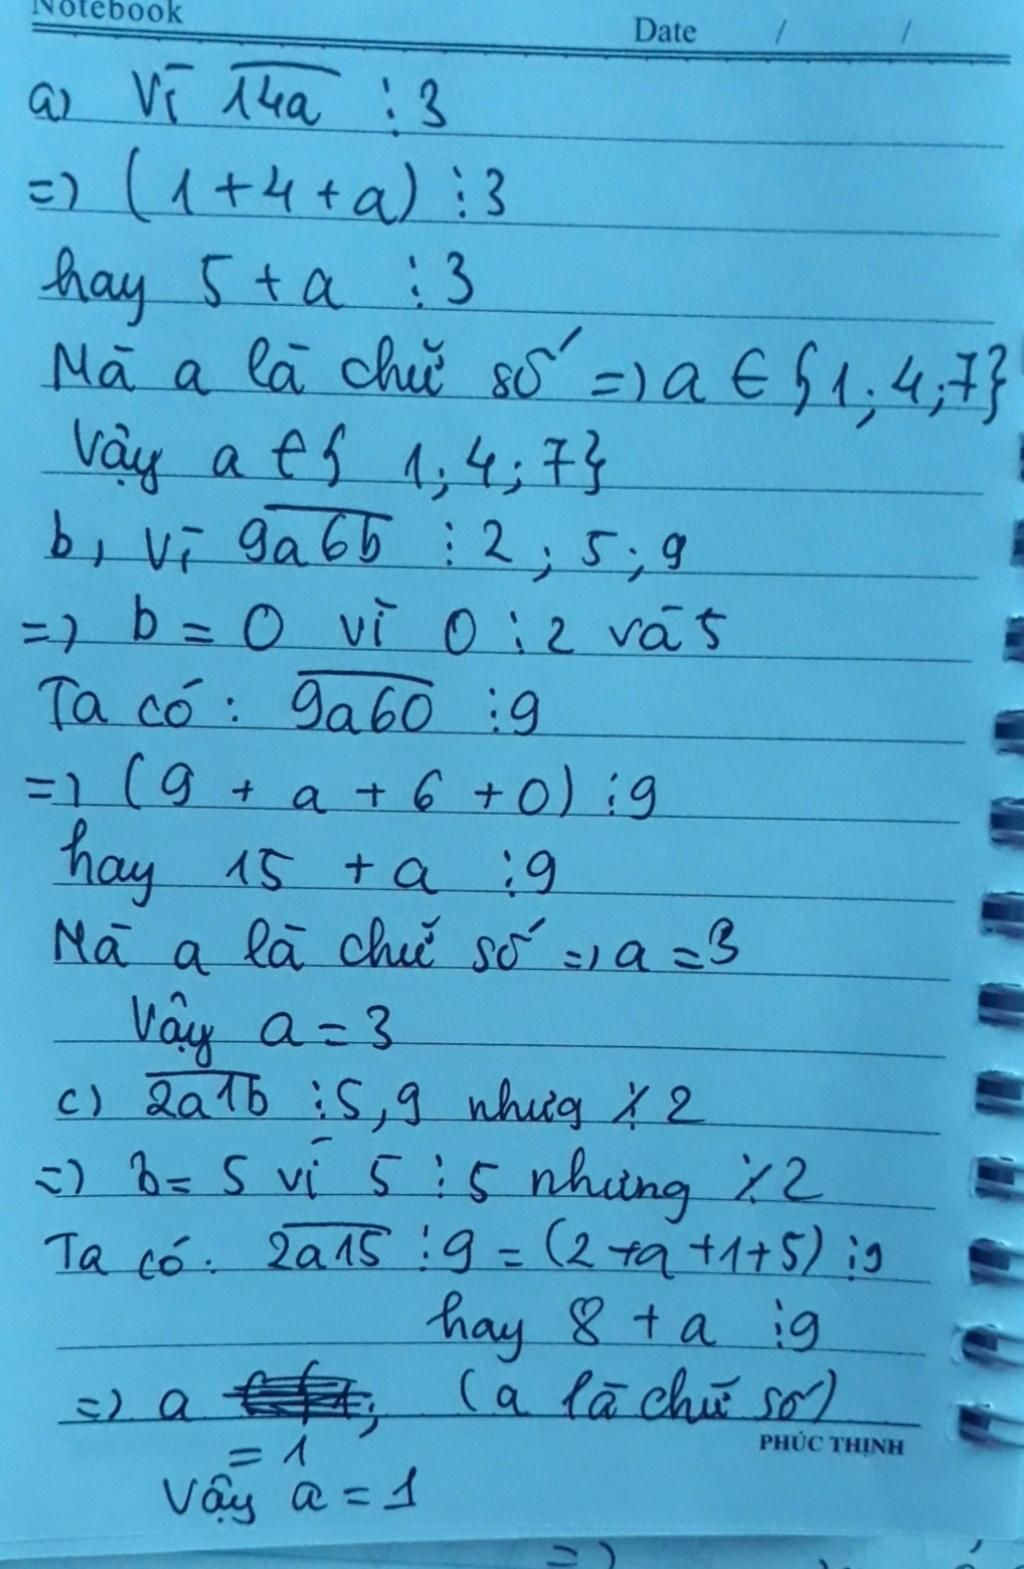 Notebook
Date / /
a) Vì 14a ⋮ 3
=) (1+4+a) ⋮ 3
hay 5 + a ⋮ 3
Mà a là chữ số =) a ∈ {1; 4; 7}
Vậy a ∈ { 1; 4; 7}
b, Vì 9a6b ⋮ 2 ; 5 ; 9
=) b = 0 vì 0 ⋮ 2 và 5
Ta có : 9a60 ⋮ 9
=) (9 + a + 6 + 0) ⋮ 9
hay 15 + a ⋮ 9
Mà a là chữ số =) a = 3
Vậy a = 3
c) 2a1b ⋮ 5, 9 nhưg ⋮̸ 2
=) b = 5 vì 5 ⋮ 5 nhưng ⋮̸ 2
Ta có : 2a15 ⋮ 9 = (2+a+1+5) ⋮ 9
hay 8 + a ⋮ 9
=) a ; (a là chữ số)
PHÚC THỊNH
= 1
Vậy a = 1
=)